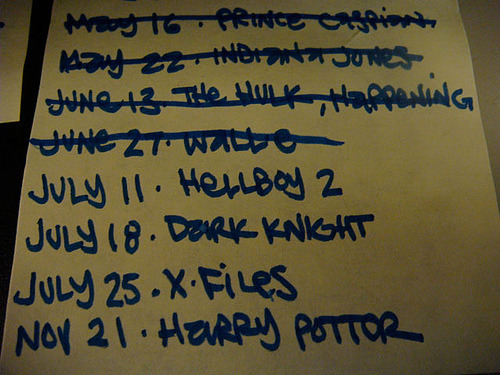 May 16 . PRINCE CASPIAN.
May 22 . INDIANA JONES
JUNE 13 THE HULK, HAPPENING
JUNE 27. WALL-E
JULY 11 . HELLBOY 2
JULY 18 . DARK KNIGHT
JULY 25 . X.FILES
NOV 21 . HARRY POTTOR